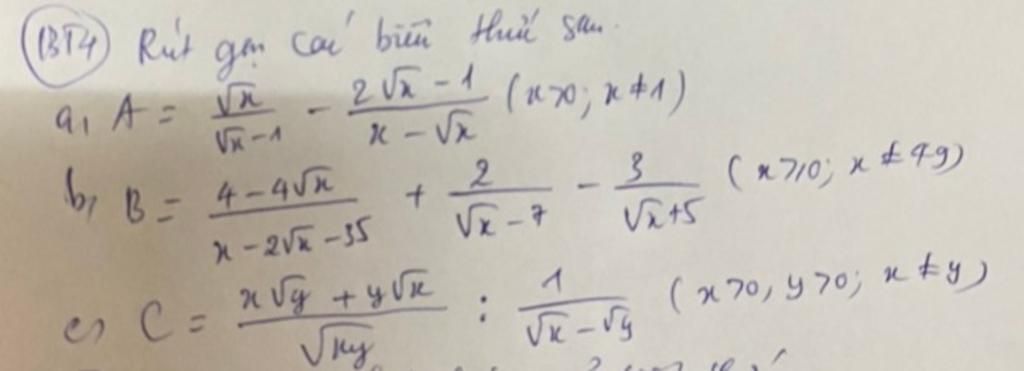 BT4 Rút gọn các biểu thức sau.
a, A = √x/(√x-1) - (2√x-1)/(x-√x) (x>0; x≠1)
b, B = (4-4√x)/(x-2√x-35) + 2/(√x-7) - 3/(√x+5) (x≥0; x≠49)
c, C = (x√y+y√x)/√xy : 1/(√x-√y) (x>0, y>0; x≠y)